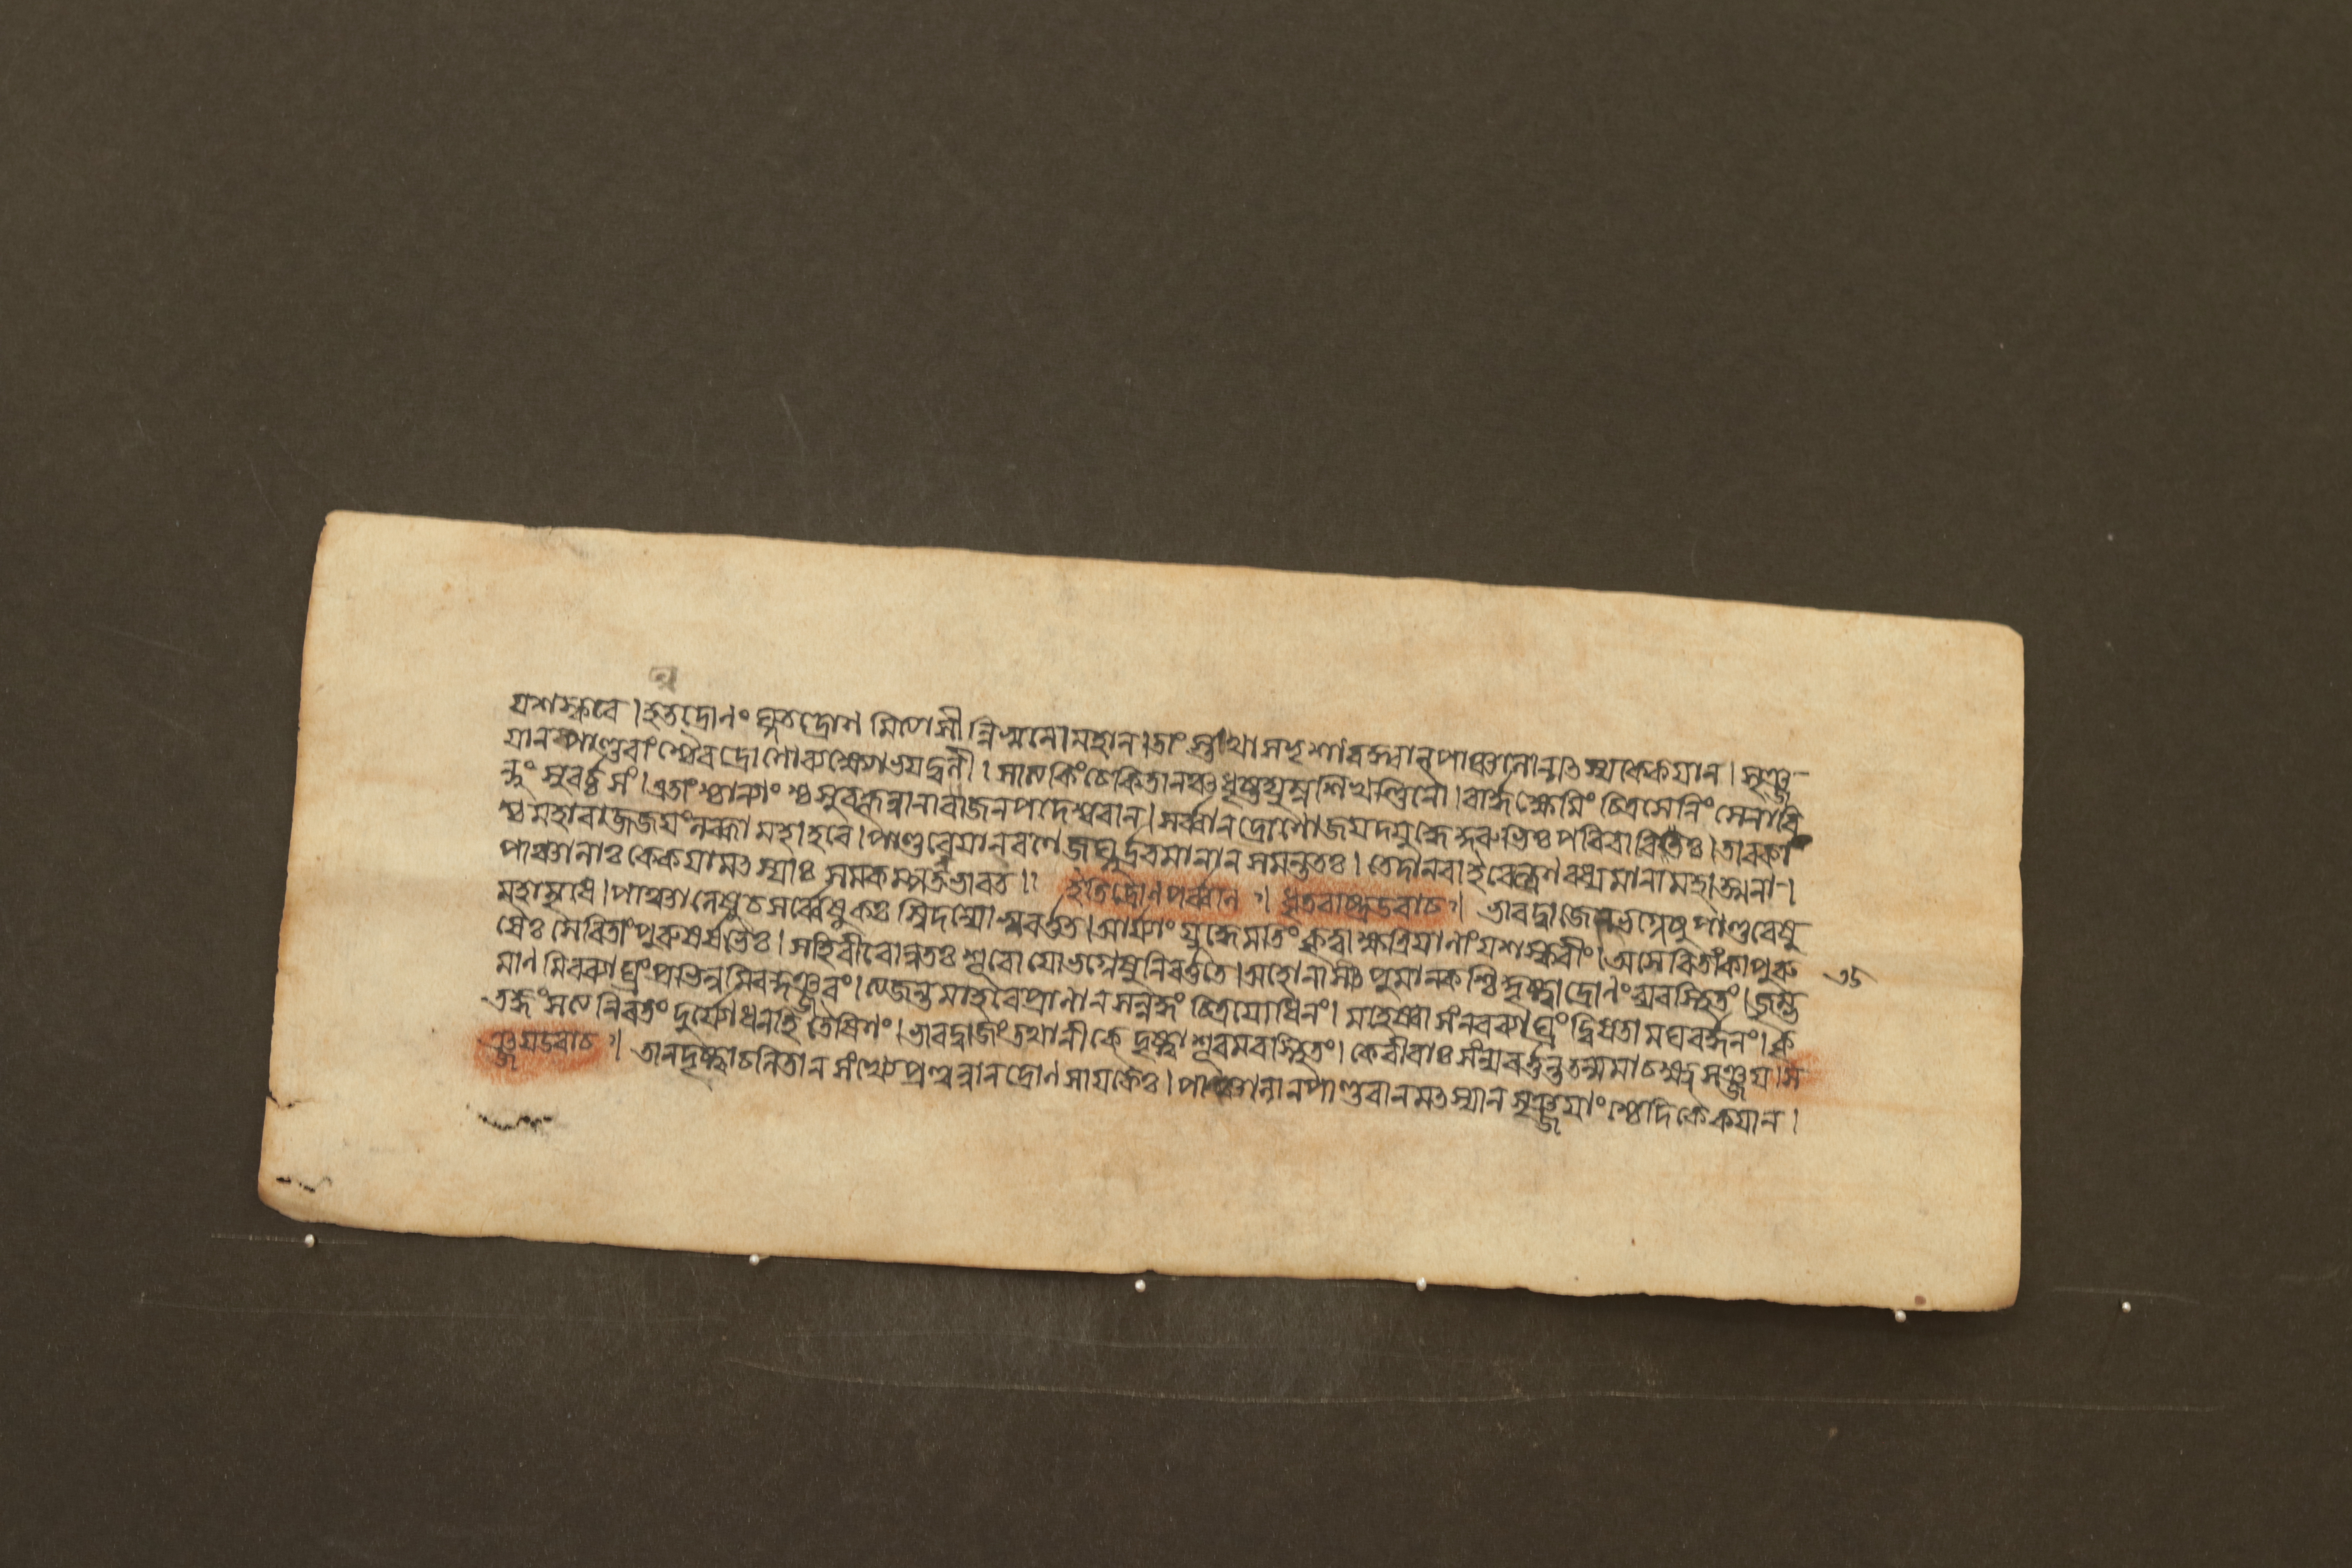 যশস্করে। হতদ্রোণং ঘ্নতদ্রোণ মিত্যাসীন্নিস্বনো মহান। তাংস্তথা সদৃশাবক্ত্যান্ পাঞ্চালান্মৎস্যকেকয়ান। সৃঞ্জ-
য়ানপাণ্ডবাংশ্চৈব দ্রোণো ব্যক্ষোভয়দ্বলী। সাত্যকিং চেকিতানঞ্চ ধৃষ্টদ্যুম্নশিখণ্ডিনৌ। বার্দ্ধক্ষেমিং চিত্রসেনিং সেনাবি
ন্দুং সুবর্চ্চসং। এতাংশ্চান্যাংশ্চ সুবহূন্নানাবাজনপদেশ্বরান। সর্ব্বান দ্রোণো জয়দযুদ্ধে কুরুভিঃ পরিবারিতঃ। তাবকা
শ্চ মহারাজ জয়ং লব্ধা মহাহবে। পাণ্ডবেয়ান রণে জঘ্নুর্দ্রবমানান সমন্ততঃ। তেদানবাইবেন্দ্রেণ বধ্যমানা মহাত্মনা-।
পাঞ্চালাঃ কেকয়া মৎস্যাঃ সমকম্পন্ত ভারত।। ইতি দ্রোণপর্ব্বনি ।। ধৃতরাষ্ট্র উবাচ।। ভারদ্বাজেন ভগ্নেষু পাণ্ডবেষু
মহামৃধে। পাঞ্চালেষু চ সর্ব্বেষু কঃ স্বিদন্যো ন্যবর্ত্তত। আর্য্যাং যুদ্ধে মতিং কৃত্বা ক্ষত্রিয়ানাং যশস্করীং। অসেবিতাং কাপুরু
ষৈঃ সেবিতাং পুরুষর্ষভৈঃ। সহি বীরোন্নতঃ শূরো যো ভগ্নেষু নিবর্ত্ততে। অহো নাসীৎ পুমান কশ্চিদ্দৃষ্ট্বা দ্রোণং ব্যবস্থিতং। জৃম্ভ
মাণ মিব ব্যাঘ্রং প্রভিন্ন মিব কুঞ্জরং। ত্যজন্ত মাহবে প্রাণান সন্নদ্ধং চিত্রযোধিনং। মহেষ্বাসং নরব্যাঘ্রং দ্বিষতা মঘবর্দ্ধনং। কৃ
তজ্ঞং সত্য নিরতং দুর্য্যোধন হিতৈষিণং। ভারদ্বাজং তথানীকে দৃষ্ট্বা শূরমবস্থিতং। কে বীরাঃ সংন্যবর্ত্তন্ত তন্মমাচক্ষ্ব সঞ্জয়। স
ঞ্জয় উবাচ।। তানদৃষ্ট্বা চলিতান সংখ্যে প্রণুন্নান দ্রোণ সায়কৈঃ। পাঞ্চালান পাণ্ডবান মৎস্যান সৃঞ্জয়াংশ্চেদিকেকয়ান।